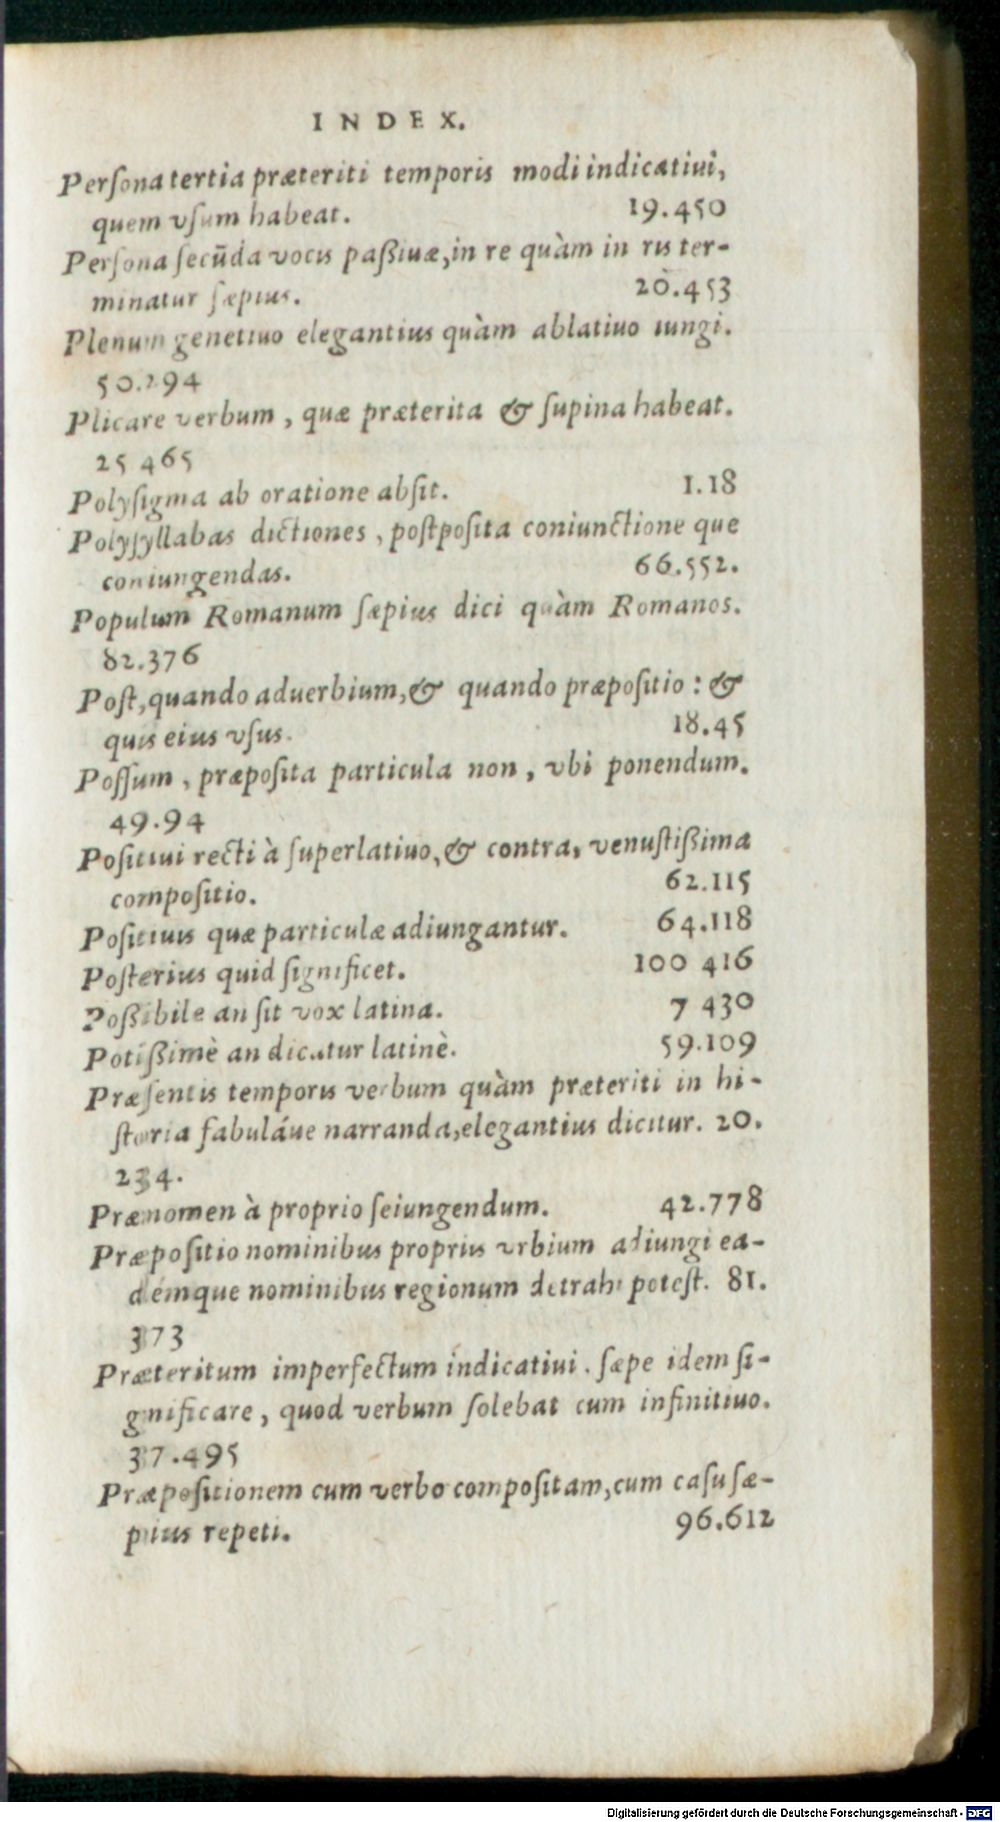 INDEX.
Persona tertia præteriti temporis modi indicatiui,
quem vsum habeat. 19.450
Persona secūda vocis paßiuæ, in re quàm in ris ter-
minatur sæpius. 20.453
Plenum genetiuo elegantius quàm ablatiuo iungi.
50.294
Plicare verbum, quæ præterita & supina habeat.
25 465
Polysigma ab oratione absit. 1.18
Polysyllabas dictiones, postposita coniunctione que
coniungendas. 66.552.
Populum Romanum sæpius dici quàm Romanos.
82.376
Post, quando aduerbium, & quando præpositio: &
quis eius vsus. 18.45
Possum, præposita particula non, vbi ponendum.
49.94
Positiui recti à superlatiuo, & contra, venustißima
compositio. 62.115
Positiuis quæ particulæ adiungantur. 64.118
Posterius quid significet. 100 416
Poßibile an sit vox latina. 7 430
Potißimè an dicatur latinè. 59.109
Præsentis temporis verbum quàm præteriti in hi-
storia fabuláue narranda, elegantius dicitur. 20.
234.
Prænomen à proprio seiungendum. 42.778
Præpositio nominibus propriis vrbium adiungi ea-
démque nominibus regionum detrahi potest. 81.
373
Præteritum imperfectum indicatiui. sæpe idem si-
gnificare, quod verbum solebat cum infinitiuo.
37.495
Præpositionem cum verbo compositam, cum casu sæ-
pius repeti. 96.612
Digitalisierung gefördert durch die Deutsche Forschungsgemeinschaft - DFG